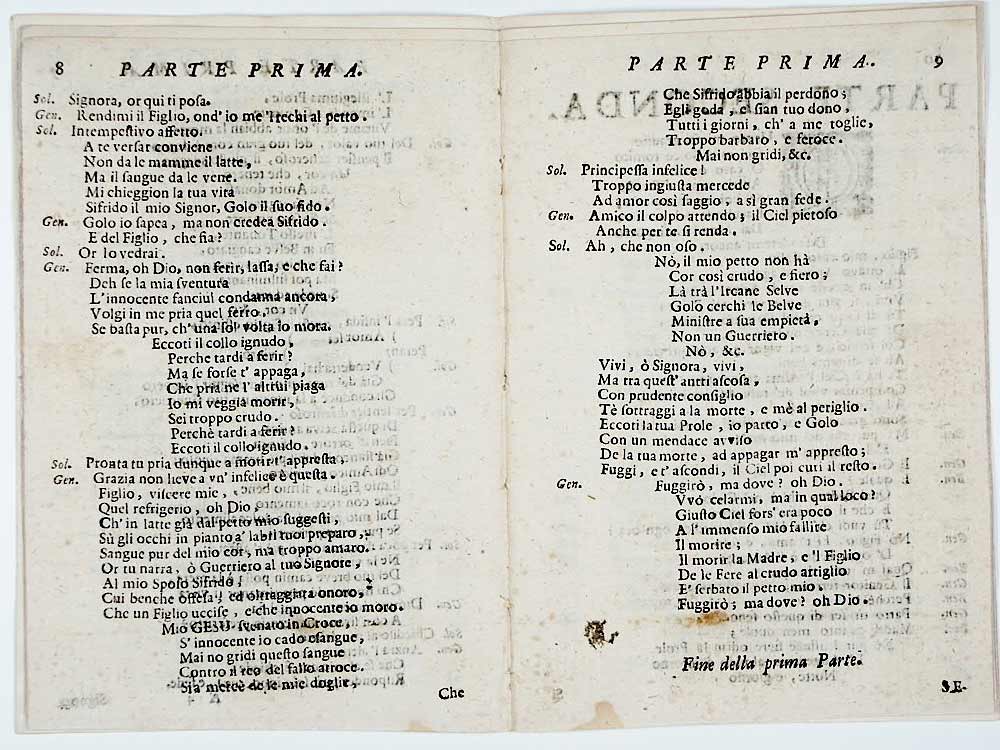 8 PARTE PRIMA.
Sol. Signora, or qui ti posa.
Gen. Rendimi il Figlio, ond' io me 'l rechi al petto.
Sol. Intempestivo affetto.
A te versar conviene
Non da le mamme il latte,
Ma il sangue da le vene.
Mi chieggion la tua vita
Sifrido il mio Signor, Golo il suo fido.
Gen. Golo io sapea, ma non credea Sifrido.
E del Figlio, che fia?
Sol. Or lo vedrai.
Gen. Ferma, oh Dio, non ferir, lassa, e che fai?
Deh se la mia sventura
L'innocente fanciul condanna ancora,
Volgi in me pria quel ferro.
Se basta pur, ch' una sol volta io mora.
Eccoti il collo ignudo,
Perche tardi a ferir?
Ma se forse t' appaga,
Che pria ne l' altrui piaga
Io mi veggia morir,
Sei troppo crudo.
Perchè tardi a ferir?
Eccoti il collo ignudo.
Sol. Pronta tu pria dunque a morir t' appresta.
Gen. Grazia non lieve a vn' infelice è questa.
Figlio, viscere mie,
Quel refrigerio, oh Dio,
Ch' in latte già dal petto mio suggesti,
Sù gli occhi in pianto a' labri tuoi preparo,
Sangue pur del mio cor, ma troppo amaro.
Or tu narra, ò Guerriero al tuo Signore,
Al mio Sposo Sifrido,
Cui benche offesa, ed oltraggiata onoro,
Che un Figlio uccise, e che innocente io moro.
Mio GESU svenato in Croce,
S' innocente io cado esangue,
Mai no gridi questo sangue
Contro il reo del fallo atroce.
Sia mercè de le mie doglie,
Che
PARTE PRIMA. 9
Che Sifrido abbia il perdono;
Egli goda, e sian tuo dono.
Tutti i giorni, ch' a me toglie,
Troppo barbaro, e feroce.
Mai non gridi, &c.
Sol. Principessa infelice!
Troppo ingiusta mercede
Ad amor così saggio, a sì gran fede.
Gen. Amico il colpo attendo; il Ciel pietoso
Anche per te si renda.
Sol. Ah, che non oso.
Nò, il mio petto non hà
Cor così crudo, e fiero;
Là trà l'Ircane Selve
Golo cerchi le Belve
Ministre a sua empietà,
Non un Guerriero.
Nò, &c.
Vivi, ò Signora, vivi,
Ma tra quest' antri ascosa,
Con prudente consiglio
Tè sottraggi a la morte, e mè al periglio.
Eccoti la tua Prole, io parto, e Golo
Con un mendace avviso
De la tua morte, ad appagar m' appresto;
Fuggi, e t' ascondi, il Ciel poi curi il resto.
Gen. Fuggirò, ma dove? oh Dio.
Vvò celarmi, ma in qual loco?
Giusto Ciel fors' era poco
A l' immenso mio fallire
Il morire;
Il morir la Madre, e 'l Figlio
De le Fere al crudo artiglio
E' serbato il petto mio.
Fuggirò; ma dove? oh Dio.
Fine della prima Parte.
SE-